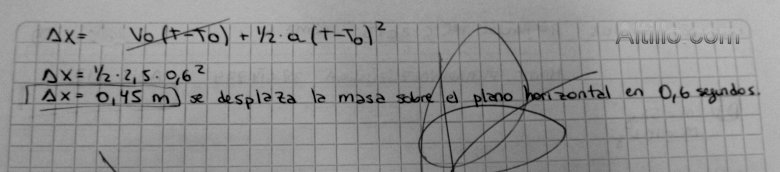 Δx= V0(T-T0) + 1/2·a(T-T0)²
Altillo.com
Δx= 1/2·2,5·0,6²
Δx= 0,45 m) se desplaza la masa sobre el plano horizontal en 0,6 segundos.